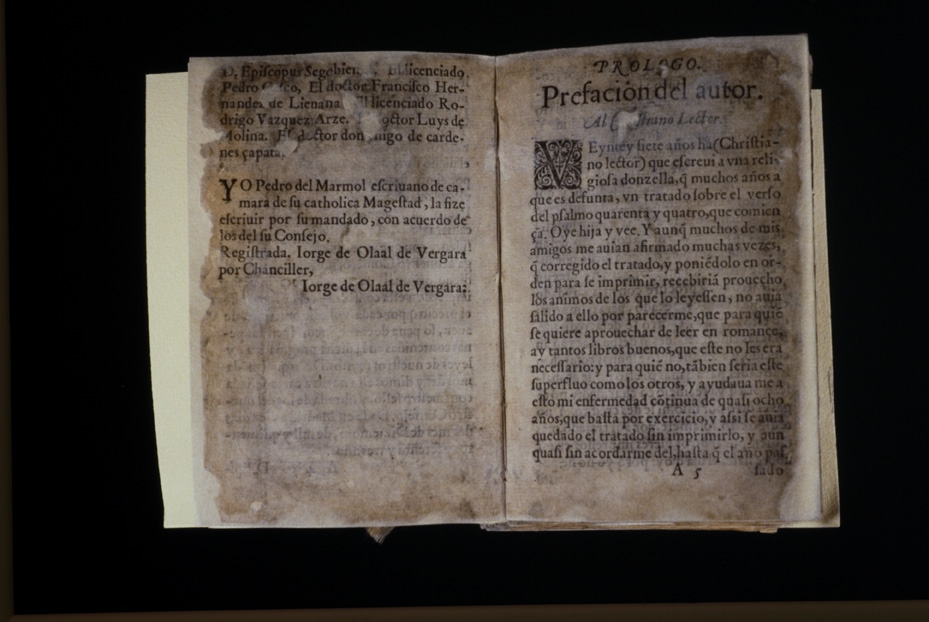 D. Episcopus Segobien. El licenciado
Pedro Gasco, El doctor Francisco Her-
nandez de Lieuana El licenciado Ro-
drigo Vazquez Arze. El doctor Luys de
Molina. El doctor don Inigo de carde-
nes çapata.
YO Pedro del Marmol escriuano de ca-
mara de su catholica Magestad, la fize
escriuir por su mandado, con acuerdo de
los del su Consejo.
Registrada. Iorge de Olaal de Vergara
por Chanciller,
Iorge de Olaal de Vergara:
PROLOGO.
Prefacion del autor.
Al Christiano Lector.
VEynte y siete años ha (Christia-
no lector) que escreui a vna reli-
giosa donzella, q̃ muchos años a
que es defunta, vn tratado sobre el verso
del psalmo quarenta y quatro, que comien
ça. Oye hija y vee. Y aunq̃ muchos de mis
amigos me auian afirmado muchas vezes,
q̃ corregido el tratado, y poniẽdolo en or-
den para se imprimir, recebiriã prouecho
los animos de los que lo leyessen, no auia
salido a ello por parecerme, que para quiẽ
se quiere aprouechar de leer en romance,
ay tantos libros buenos, que este no les era
necessario: y para quiẽ no, tãbien seria este
superfluo como los otros, y ayudaua me a
esto mi enfermedad cõtinua de quasi ocho
años, que basta por exercicio, y assi se auia
quedado el tratado sin imprimirlo, y aun
quasi sin acordarme del, hasta q̃ el año pas
A 5 sado